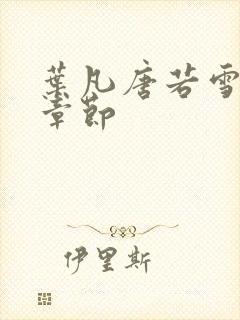 葉凡唐若雪
章節
伊里斯